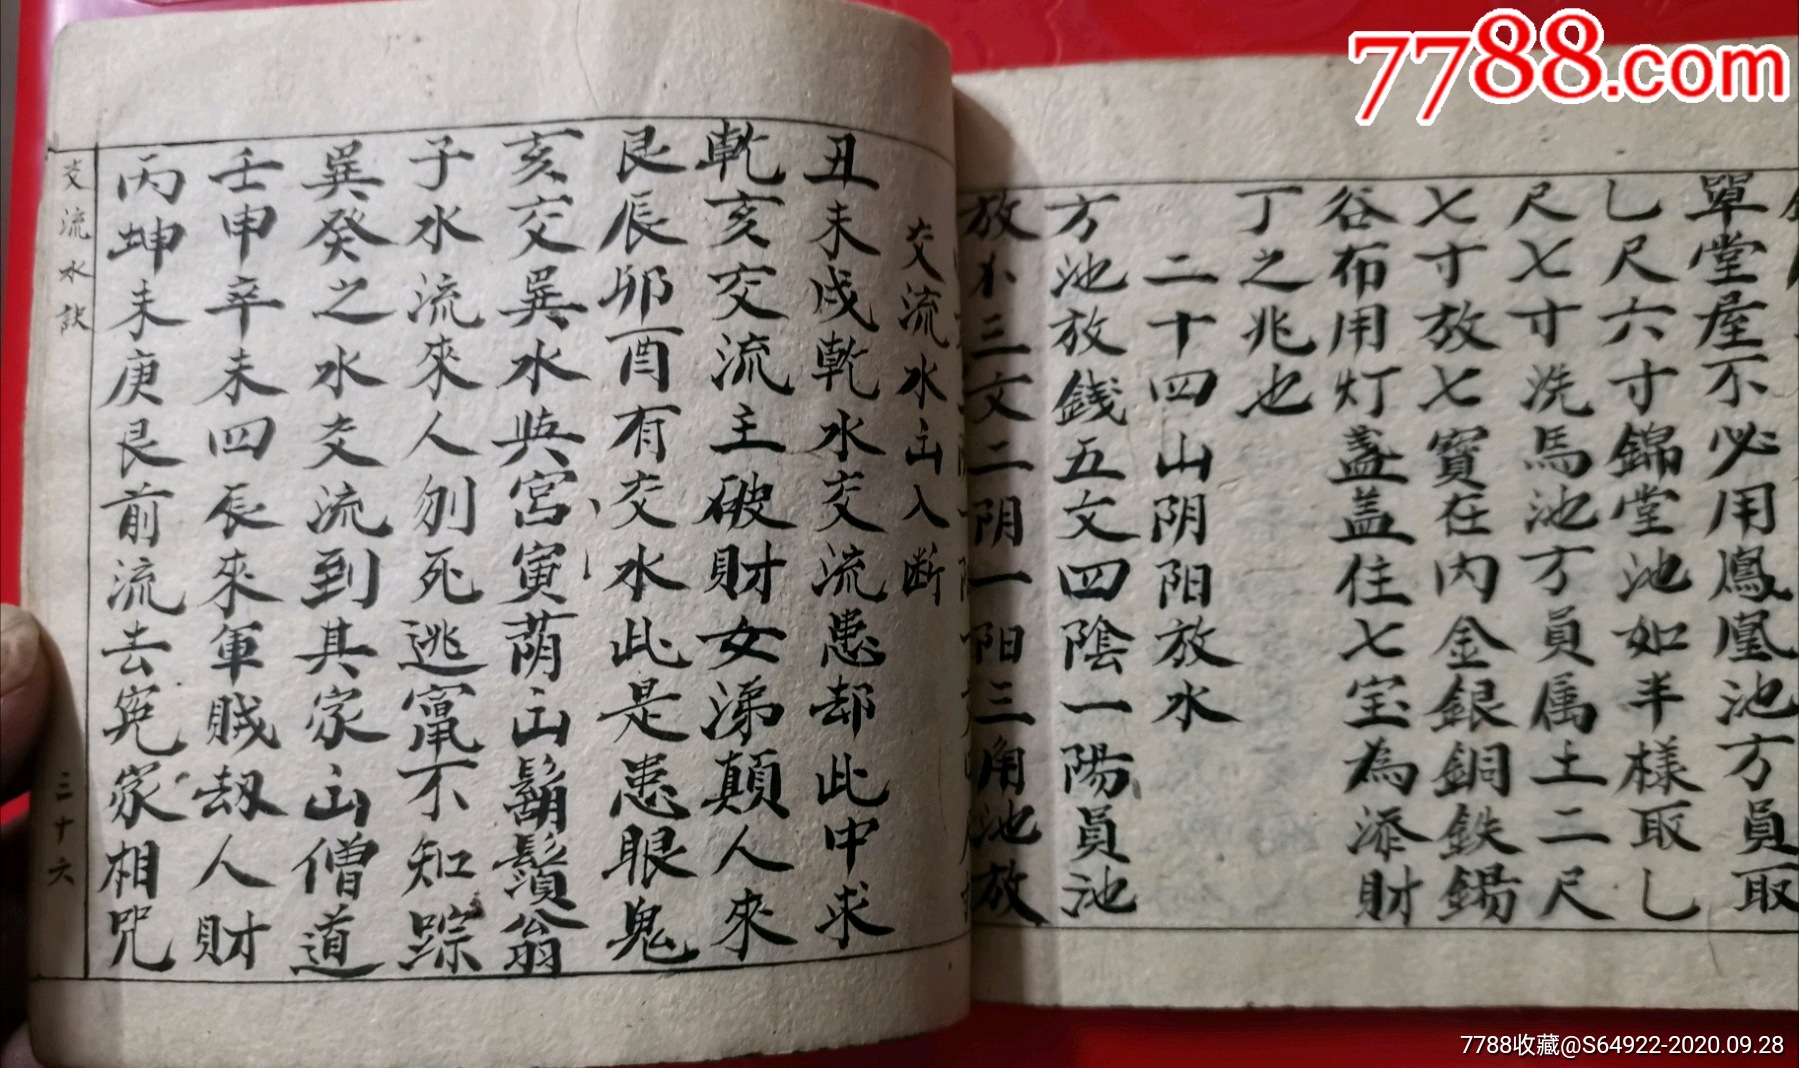 單堂屋不必用鳳凰池方員取
乚尺六寸錦堂池如半樣取乚
尺七寸洗馬池方員属土二尺
七寸放七寳在内金銀銅鉄錫
谷布用灯盞盖住七宝為添財
丁之兆也
二十四山阴阳放水
方池放錢五文四陰一陽員池
放水三文二阴一阳三角池放
交流水山入断
丑未戌乾水交流患却此中求
乾亥交流主破財女涕顛人來
艮辰卯酉有交水此是患眼鬼
亥交巽水與宫寅荫山鬍鬚翁
子水流來人刎死逃竄不知踪
巽癸之水交流到其家山僧道
壬申辛未四辰來軍賊刼人財
丙坤未庚艮前流去寃家相咒
交流水訣
三十六
7788.com
7788收藏@S64922-2020.09.28